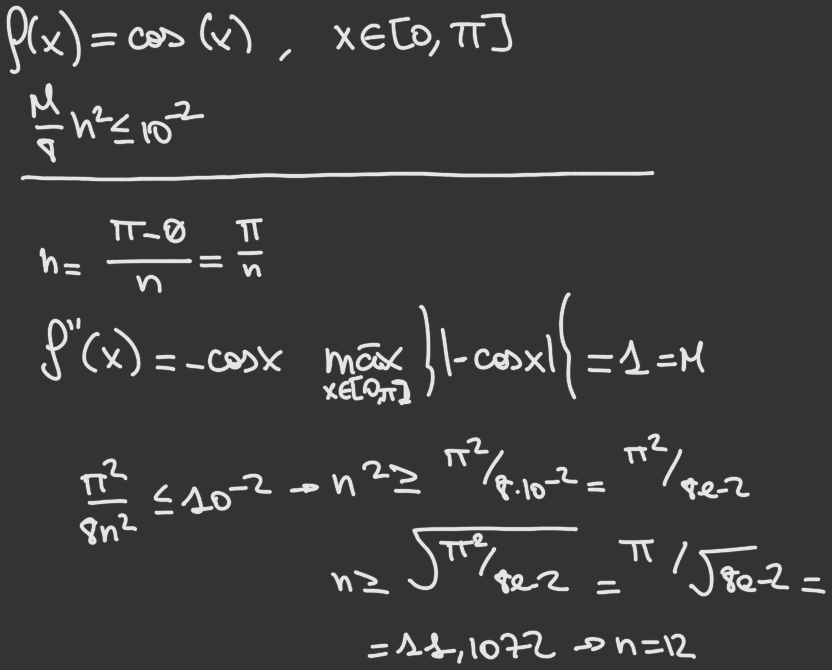 f(x) = cos (x) , x∈[0, π]
M/8 h² ≤ 10⁻²
h = (π-0)/n = π/n
f''(x) = -cosx max x∈[0,π] }|-cosx|{ = 1 = M
π²/8n² ≤ 10⁻² → n² ≥ π²/8·10⁻² = π²/8e-2
n ≥ √(π²/8e-2) = π/√8e-2 =
= 11,1072 → n=12